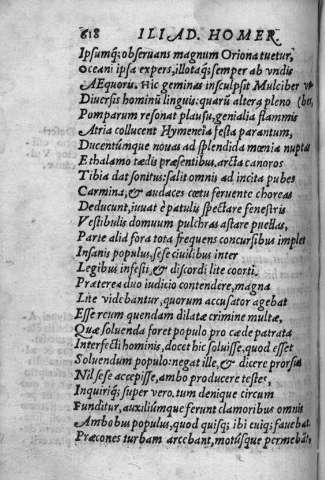 618 ILIAD. HOMER.
Ipsumq́; obseruans magnum Oriona tuetur,
Oceani ipsa expers, illotaq́; semper ab vndis
AEquoris. Hic geminas insculpsit Mulciber vr
Diuersis hominũ linguis: quarũ altera pleno (bes,
Pomparum resonat plausu, genialia flammis
Atria collucent Hymeneia festa parantum,
Ducentúmque nouas ad splendida mœnia nuptas
E thalamo tædis præsentibus, arcta canoros
Tibia dat sonitus: salit omnis ad incita pubes
Carmina, & audaces cœtu feruente choreas
Deducunt, iuuat è patulis spectare fenestris
Vestibulis domuum pulchras astare puellas,
Parte alid fora tota frequens concursibus implet
Insanis populus, sese ciuilibus inter
Legibus infesti, & discordi lite coorti.
Præterea duo iudicio contendere, magna
Lite videbantur, quorum accusator agebat
Esse reum quendam dilatæ crimine multæ,
Quæ soluenda foret populo pro cæde patrata
Interfecti hominis, docet hic soluisse, quod esset
Soluendum populo: negat ille, & dicere prorsus
Nil sese accepisse, ambo producere testes,
Inquiriq́; super vero. tum denique circum
Funditur, auxiliúmque ferunt clamoribus omnis
Ambobus populus, quod quisq; ibi cuiq; fauebat.
Præcones turbam arcebant, motúsque premebãt,